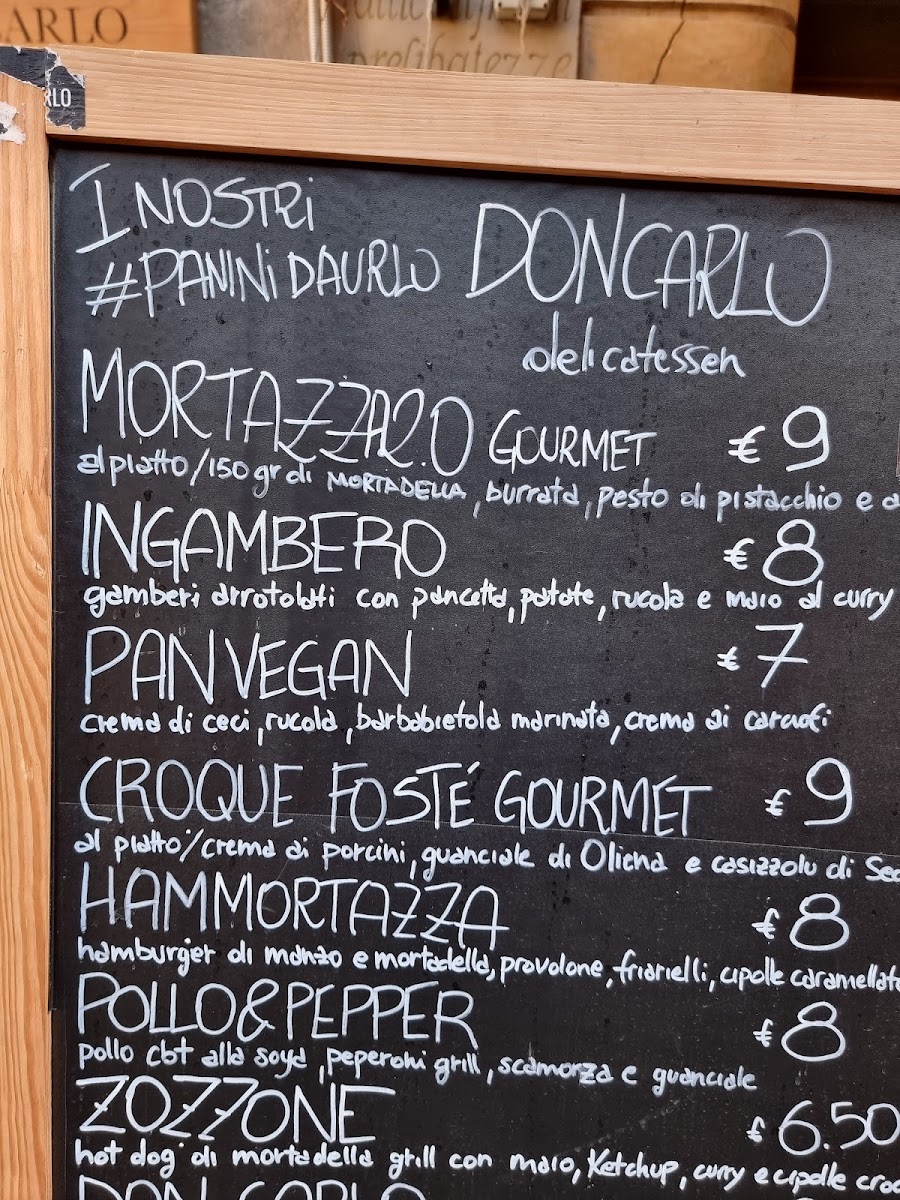 CARLO
prelibatezze
RLO
I NOSTRI
#PANINIDAURLO DON CARLO
delicatessen
MORTAZZA2.0 GOURMET €9
al piatto/150 gr di MORTADELLA, burrata, pesto di pistacchio e a
INGAMBERO €8
gamberi arrotolati con pancetta, patate, rucola e maio al curry
PANVEGAN €7
crema di ceci, rucola, barbabietola marinata, crema ai carciofi
CROQUE FOSTÉ GOURMET €9
al piatto/crema ai porcini, guanciale di Oliena e casizzolu di Se
HAMMORTAZZA €8
hamburger di manzo e mortadella, provolone, friarielli, cipolle caramellate
POLLO&PEPPER €8
pollo cbt alla soya, peperoni grill, scamorza e guanciale
ZOZZONE €6.50
hot dog di mortadella grill con maio, Ketchup, curry e cipolle croc
DON CARLO